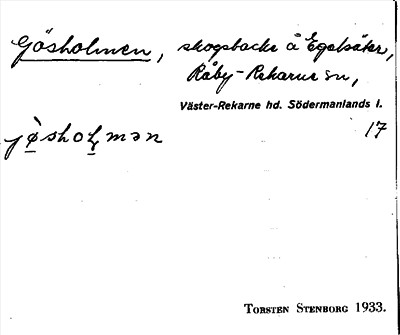 Gösholmen, skogsbacke å Egelsäter,
Råby-Rekarne sn,
Väster-Rekarne hd. Södermanlands l.
jø̀sholmən 17
TORSTEN STENBORG 1933.